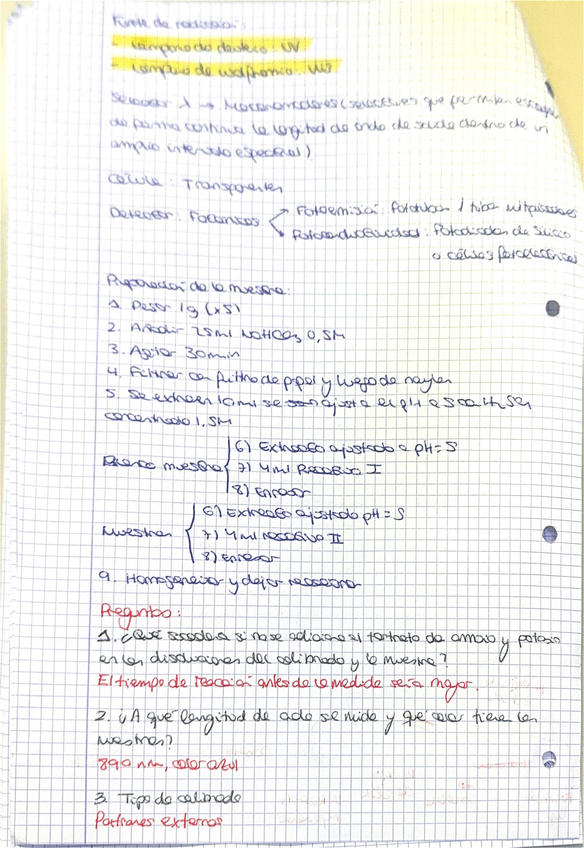 Fuente de radiación:
- Lámpara de deuterio: UV
- Lámpara de wolframio: VIS
Selector λ → Monocromadores (selectores que permiten escoger
de forma continua la longitud de onda de salida dentro de un
amplio intervalo espectral)
Célula: Transparentes
Detector: Fotónicos
Fotoemisión: Fototubos / tubos
Fotoconductividad: Fotodiodos de Silicio
o células fotoeléctricas
Preparación de la muestra:
1. Pesar 1g (x5)
2. Añadir 25ml NaHCO3 0,5M
3. Agitar 30min
4. Filtrar con filtro de papel y luego de naylon
5. Se extraen 10ml se ajusta el pH a 5 con H2SO4
concentrado 1,5M
Blanco muestra
6) Extracto ajustado a pH=5
7) 4ml Reactivo I
8) Enrasar
Muestra
6) Extracto ajustado pH=5
7) 4ml reactivo II
8) Enrasar
9. Homogeneizar y dejar reaccionar
Preguntas:
1. ¿Qué sucederá si no se adiciona el tartrato de amonio y potasio
en las disoluciones del calibrado y la muestra?
El tiempo de reacción antes de la medida sería mayor.
2. ¿A qué longitud de onda se mide y qué color tiene las
muestras?
890 nm, color azul
3. Tipo de calibrado
Patrones externos